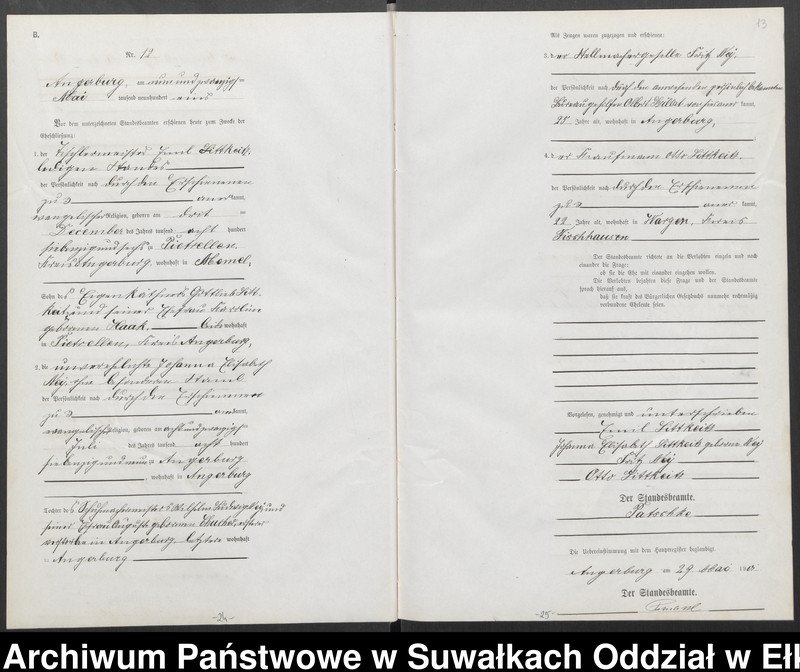 B.
Nr. 12
Angerburg, am neun und zwanzigsten
Mai tausend neunhundert eins
Vor dem unterzeichneten Standesbeamten erschienen heute zum Zwecke der
Eheschließung:
1. der Tischlermeister Emil Sittkeit,
ledigen Standes
der Persönlichkeit nach durch den
zu 3 anerkannt,
evangelischer Religion, geboren am drit
December des Jahres tausend acht hundert
siebenzig und sechs in Pietrellen,
Kreis Angerburg, wohnhaft in Memel,
Sohn des Eigenkäthners Gottlieb Sitt-
keit und seiner Ehefrau Karoline
geborenen Haak, beide wohnhaft
in Pietrellen, Kreis Angerburg,
2. die unverehelichte Johanna Elisabeth
Mey, ohne besonderen Stand
der Persönlichkeit nach durch den
zu 3 anerkannt,
evangelischer Religion, geboren am acht und zwanzigsten
Juli des Jahres tausend acht hundert
siebenzig und neun in Angerburg
wohnhaft in Angerburg
Tochter des Schuhmachermeisters Wilhelm Mey und
seiner Ehefrau Auguste geborenen
in Angerburg letztere wohnhaft
in Angerburg
-24-
13
Als Zeugen waren zugezogen und erschienen:
3. der Stellmachergeselle Fritz Mey.
der Persönlichkeit nach durch den anwesenden persönlich bekannten
Büreaugehilfen Albert kannt,
25 Jahre alt, wohnhaft in Angerburg,
4. der Kaufmann Otto Sittkeit.
der Persönlichkeit nach durch den
zu 3 anerkannt,
22 Jahre alt, wohnhaft in Wargen, Kreis
Fischhausen
Der Standesbeamte richtete an die Verlobten einzeln und nach
einander die Frage:
ob sie die Ehe mit einander eingehen wollen.
Die Verlobten bejahten diese Frage und der Standesbeamte
sprach hierauf aus,
daß sie kraft des Bürgerlichen Gesetzbuchs nunmehr rechtmäßig
verbundene Eheleute seien.
Vorgelesen, genehmigt und unterschrieben
Emil Sittkeit
Johanna Elisabeth Sittkeit geborene Mey
Fritz Mey
Otto Sittkeit
Der Standesbeamte.
Patschke
Die Uebereinstimmung mit dem Hauptregister beglaubigt
Angerburg am 29 Mai 1901
Der Standesbeamte.
-25-
Archiwum Państwowe w Suwałkach Oddział w Eł